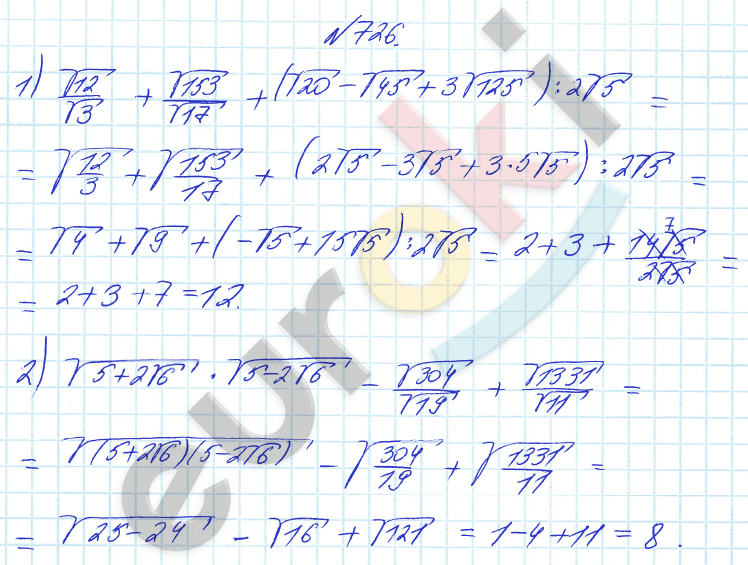 №726.
1) √12/√3 + √153/√17 + (√20 − √45 + 3√125) : 2√5 =
= √(12/3) + √(153/17) + (2√5 − 3√5 + 3·5√5) : 2√5 =
= √4 + √9 + (−√5 + 15√5) : 2√5 = 2 + 3 + 14√5/2√5 7 =
= 2 + 3 + 7 = 12.
2) √(5+2√6) · √(5−2√6) − √304/√19 + √1331/√11 =
= √((5+2√6)(5−2√6)) − √(304/19) + √(1331/11) =
= √(25−24) − √16 + √121 = 1−4+11 = 8.
euroki